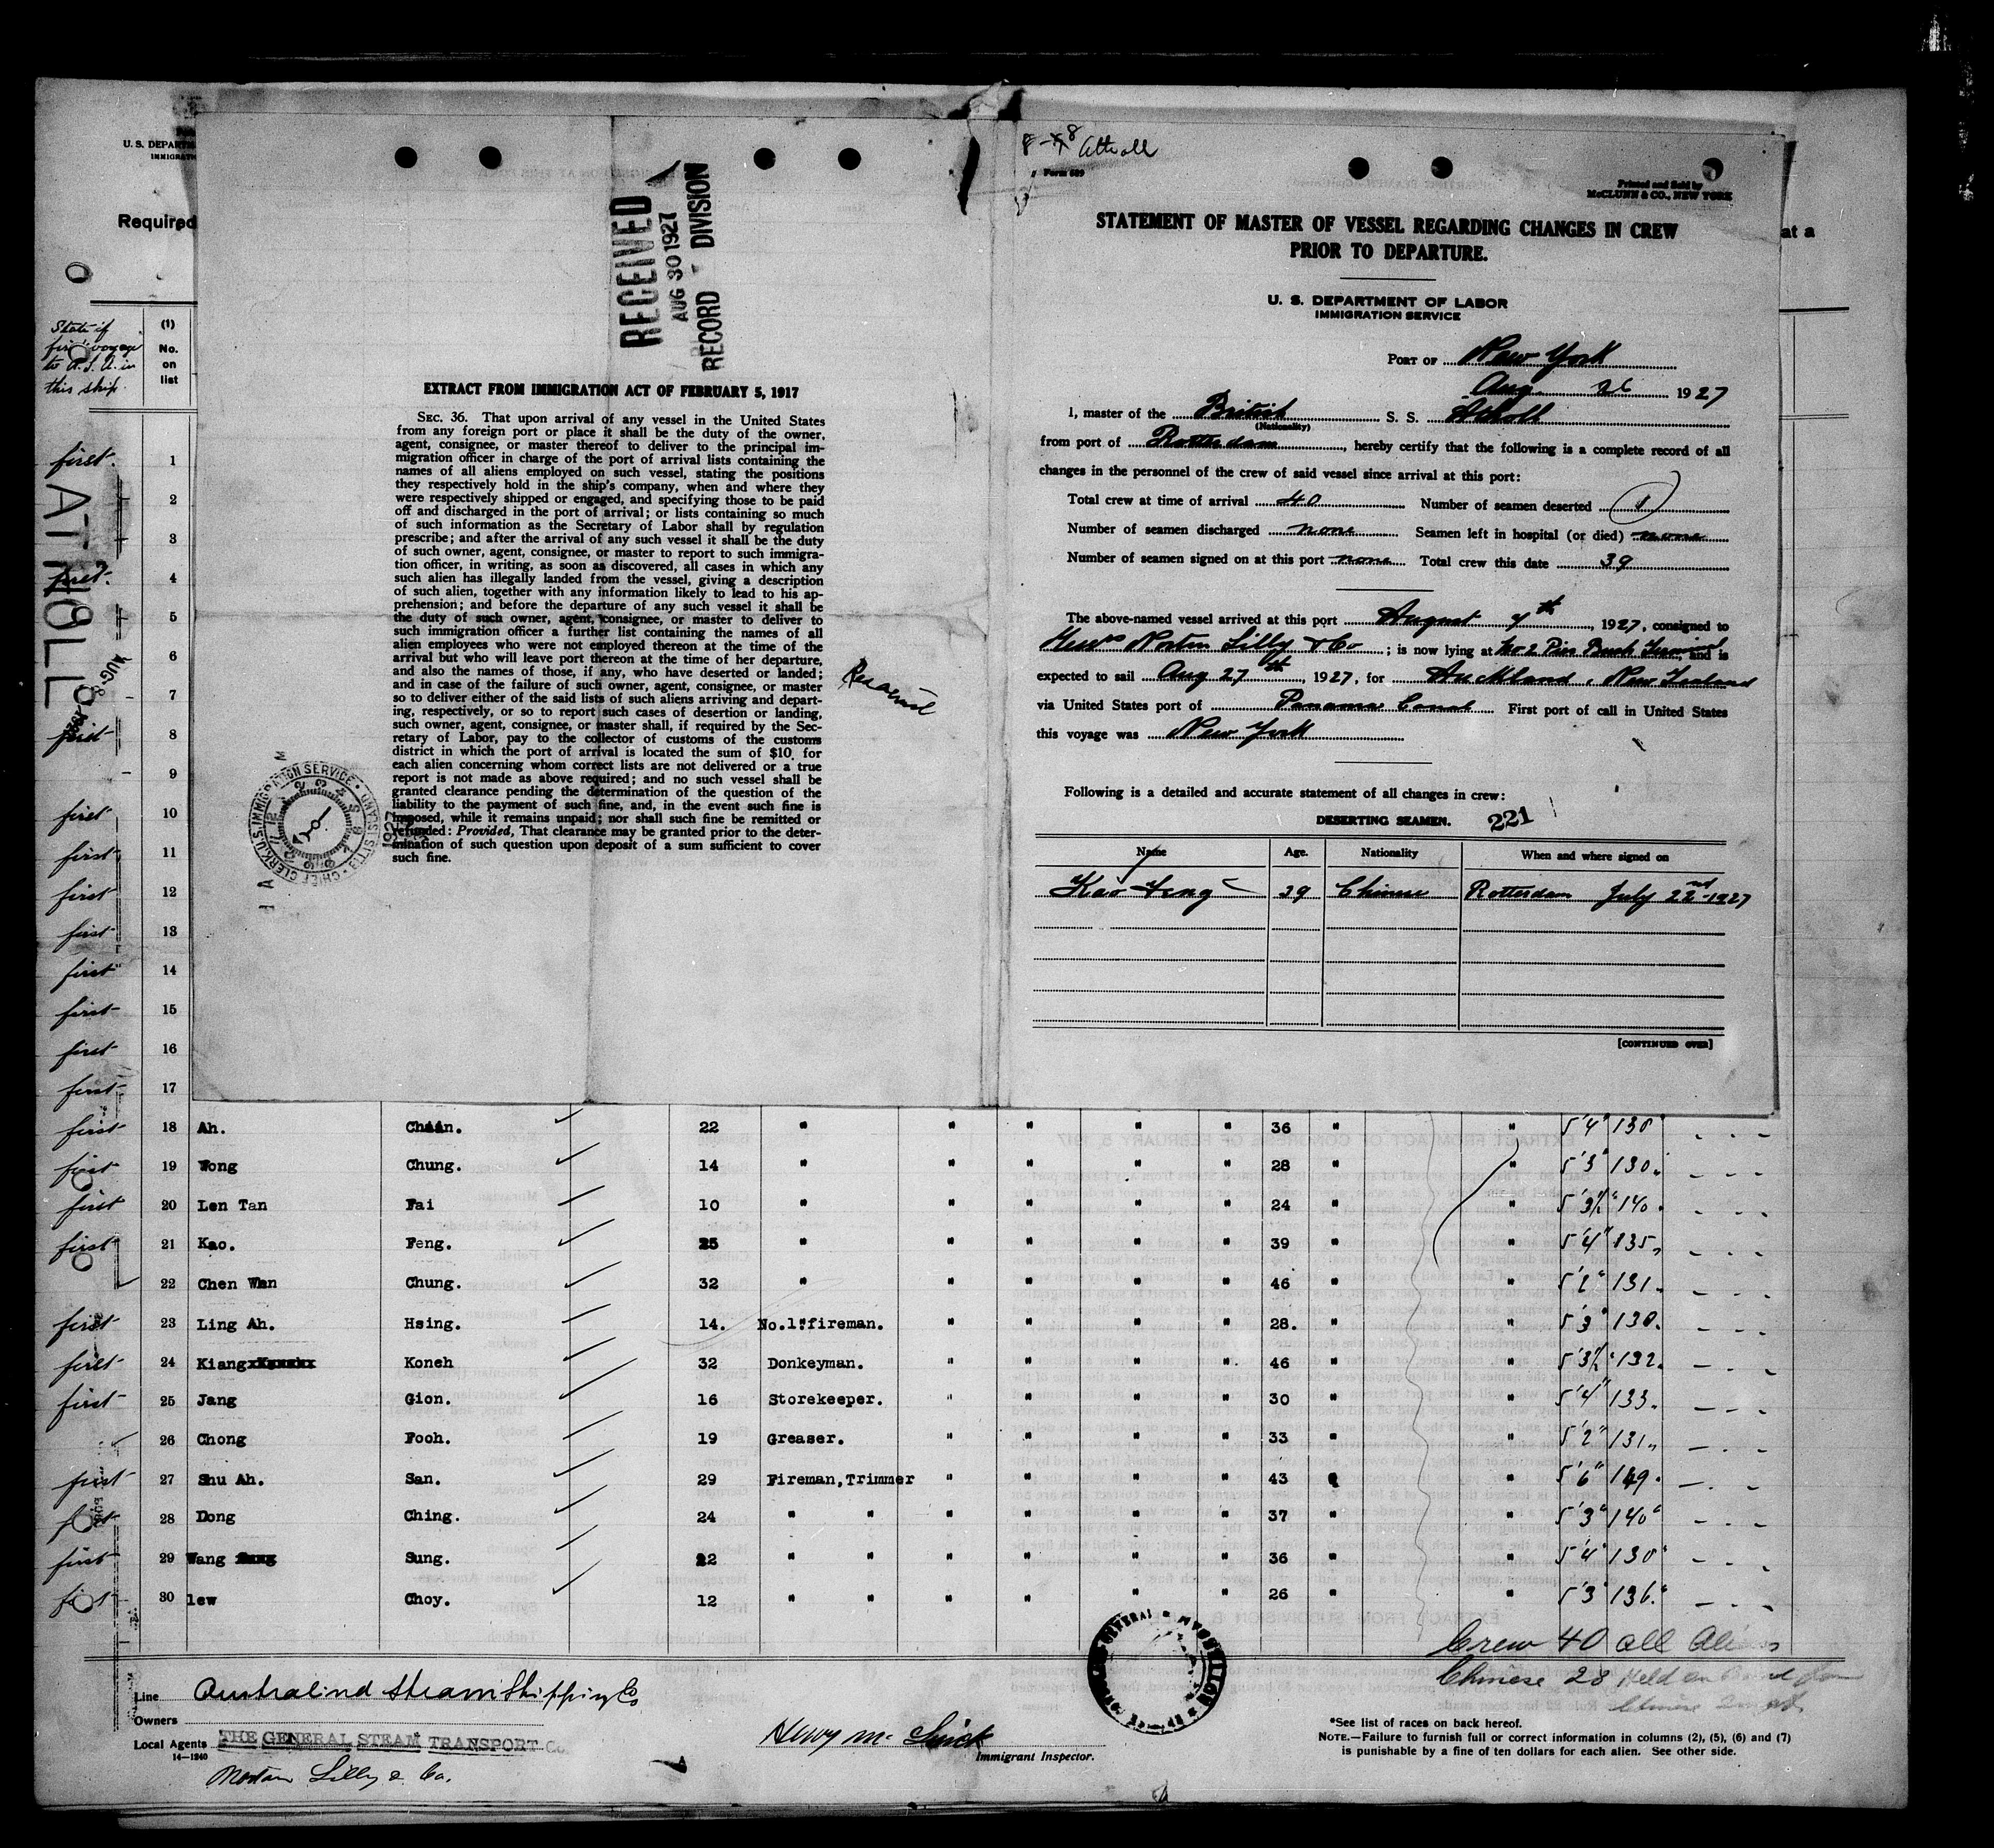 U. S. DEPART
IMMIGRATI
Required
at a
State if
first voyage
to U.S.A. in
this ship.
(1)
No.
on
list
ATHOLL
AUG-8
RECEIVED
AUG 30 1927
RECORD - DIVISION
EXTRACT FROM IMMIGRATION ACT OF FEBRUARY 5, 1917
SEC. 36. That upon arrival of any vessel in the United States
from any foreign port or place it shall be the duty of the owner,
agent, consignee, or master thereof to deliver to the principal im-
migration officer in charge of the port of arrival lists containing the
names of all aliens employed on such vessel, stating the positions
they respectively hold in the ship's company, when and where they
were respectively shipped or engaged, and specifying those to be paid
off and discharged in the port of arrival; or lists containing so much
of such information as the Secretary of Labor shall by regulation
prescribe; and after the arrival of any such vessel it shall be the duty
of such owner, agent, consignee, or master to report to such immigra-
tion officer, in writing, as soon as discovered, all cases in which any
such alien has illegally landed from the vessel, giving a description
of such alien, together with any information likely to lead to his ap-
prehension; and before the departure of any such vessel it shall be
the duty of such owner, agent, consignee, or master to deliver to
such immigration officer a further list containing the names of all
alien employees who were not employed thereon at the time of the
arrival but who will leave port thereon at the time of her departure,
and also the names of those, if any, who have deserted or landed;
and in case of the failure of such owner, agent, consignee, or master
so to deliver either of the said lists of such aliens arriving and depart-
ing, respectively, or so to report such cases of desertion or landing,
such owner, agent, consignee, or master shall, if required by the Sec-
retary of Labor, pay to the collector of customs of the customs
district in which the port of arrival is located the sum of $10 for
each alien concerning whom correct lists are not delivered or a true
report is not made as above required; and no such vessel shall be
granted clearance pending the determination of the question of the
liability to the payment of such fine, and, in the event such fine is
imposed, while it remains unpaid; nor shall such fine be remitted or
refunded: Provided, That clearance may be granted prior to the deter-
mination of such question upon deposit of a sum sufficient to cover
such fine.
CHIEF CLERK, U.S. IMMIGRATION SERVICE
1927
8-8 Atholl
Form 689
Printed and Sold by
McCLUNN & CO., NEW YORK
STATEMENT OF MASTER OF VESSEL REGARDING CHANGES IN CREW
PRIOR TO DEPARTURE.
U. S. DEPARTMENT OF LABOR
IMMIGRATION SERVICE
PORT OF New York
Aug. 26 1927
I, master of the British S. S. Atholl
(Nationality)
from port of Rotterdam, hereby certify that the following is a complete record of all
changes in the personnel of the crew of said vessel since arrival at this port:
Total crew at time of arrival 40 Number of seamen deserted 1
Number of seamen discharged none Seamen left in hospital (or died) none
Number of seamen signed on at this port none Total crew this date 39
The above-named vessel arrived at this port August 7th, 1927, consigned to
Messrs Norton Lilly & Co; is now lying at No 2 Pier Bush Terminal, and is
expected to sail Aug 27th, 1927, for Auckland, New Zealand
via United States port of Panama Canal First port of call in United States
this voyage was New York
Following is a detailed and accurate statement of all changes in crew:
DESERTING SEAMEN. 221
Name Age. Nationality When and where signed on
Kao Feng 39 Chinese Rotterdam July 22nd-1927
[CONTINUED OVER]
first 1
2
3
first 4
5
6
7
first 8
9
first 10
first 11
first 12
first 13
first 14
first 15
first 16
first 17
first 18 Ah. Chan. 22 " " " " " 36 " " 5'4" 130" - - -
first 19 Wong Chung. 14 " " " " " 28 " " 5'3" 130" - - -
first 20 Len Tan Fai 10 " " " " " 24 " " 5'3½" 140" - - -
first 21 Kao. Feng. 25 " " " " " 39 " " 5'4" 135" - - -
22 Chen Wan Chung. 32 " " " " " 46 " " 5'2" 131" - - -
first 23 Ling Ah. Hsing. 14. No.1.fireman. " " " " 28. " " 5'3" 130" - - -
first 24 Kiang Koneh 32 Donkeyman. " " " " 46 " " 5'3½" 132" - - -
first 25 Jang Gion. 16 Storekeeper. " " " " 30 " " 5'4" 133" - - -
26 Chong Fooh. 19 Greaser. " " " " 33 " " 5'2" 131" - - -
first 27 Shu Ah. San. 29 Fireman,Trimmer " " " " 43 " " 5'6" 149" - - -
first 28 Dong Ching. 24 " " " " " " 37 " " 5'3" 140" - - -
first 29 Wang Sung. 22 " " " " " " 36 " " 5'4" 130" - - -
first 30 lew Choy. 12 " " " " " " 26 " " 5'3" 136" - - -
Crew 40 all Aliens
Chinese 28 Held on Board
Line Australind Steam Shipping Co
Owners
Local Agents THE GENERAL STEAM TRANSPORT Co.
14-1240
Norton Lilly & Co.
Immigrant Inspector.
*See list of races on back hereof.
NOTE.—Failure to furnish full or correct information in columns (2), (5), (6) and (7)
is punishable by a fine of ten dollars for each alien. See other side.